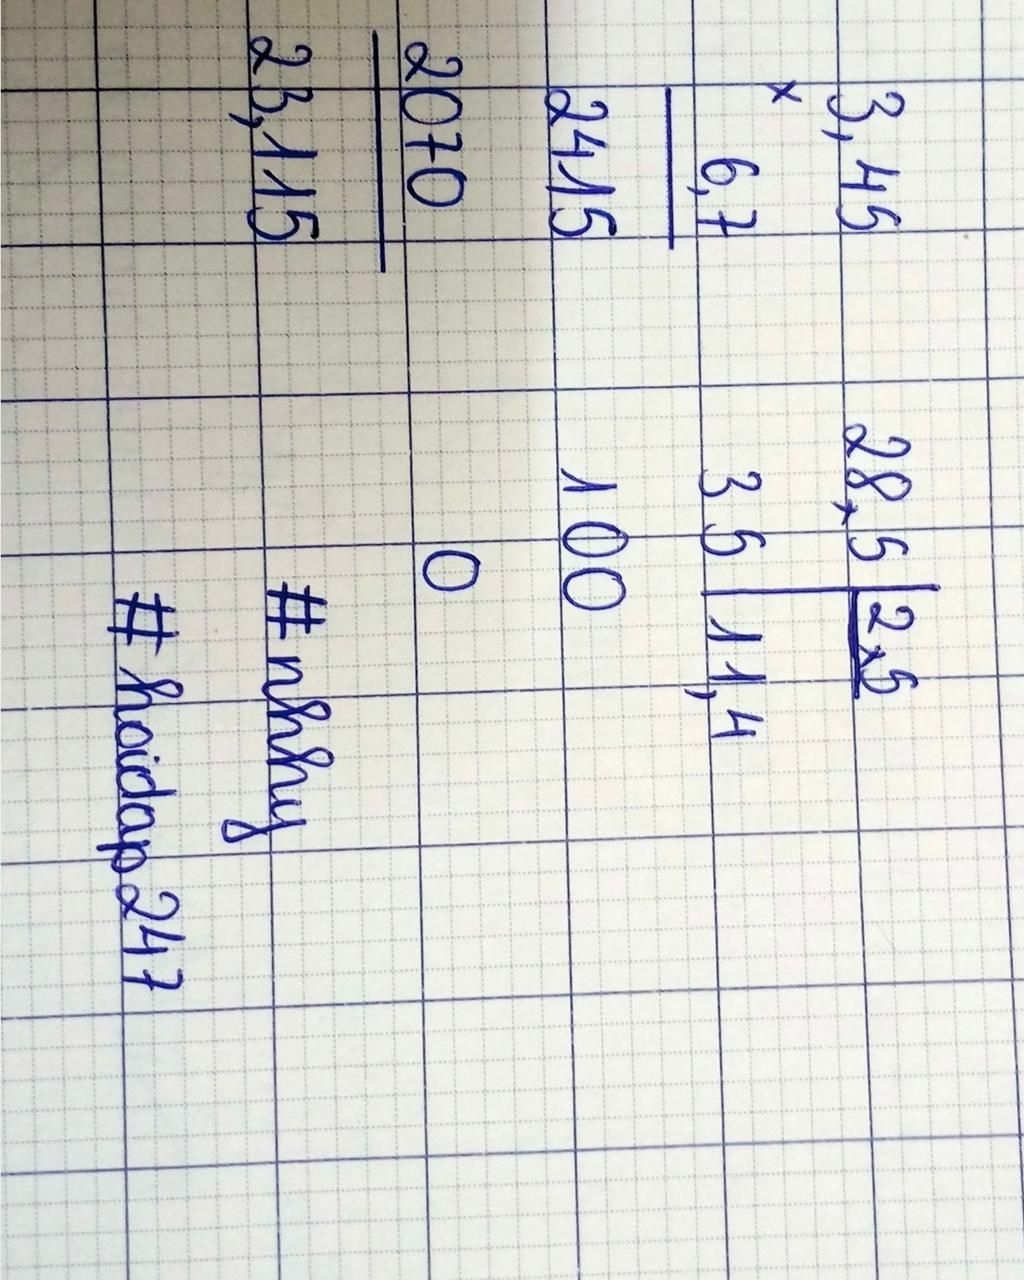 3,45
×
6,7
2415
2070
23,115
28,5 2,5
35 11,4
100
0
#nhhy
#hoidap247